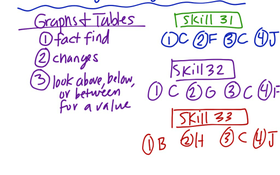 Graphs & Tables
① fact find
② changes
③ look above, below,
or between
for a value
Skill 31
① C ② F ③ C ④ J
Skill 32
① C ② G ③ C ④ F
Skill 33
① B ② H ③ C ④ J